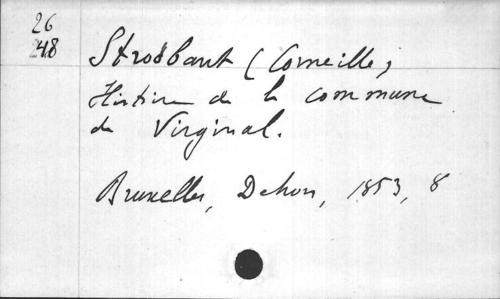 26
248
Stroobant (Corneille)
Histoire de la commune
de Virginal.
Bruxelles, Dehou, 1853, 8